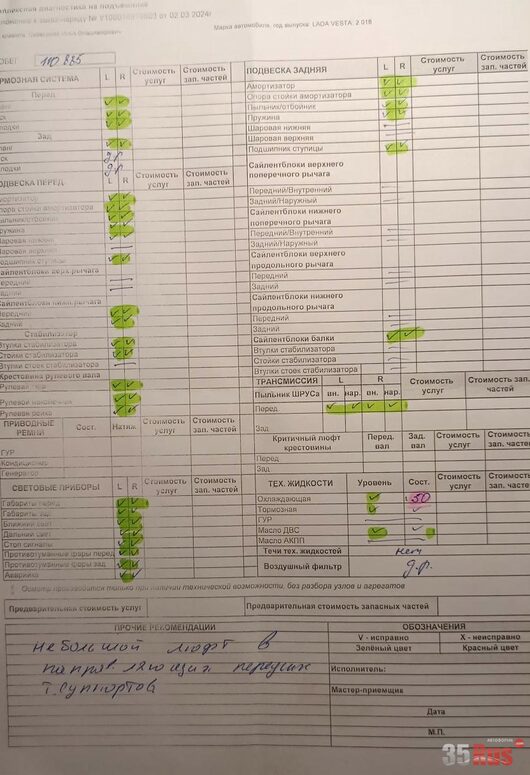 диагностика на подъёмнике
№ У100016978603 от 02.03.2024г
Марка автомобиля, год выпуска: LADA VESTA, 2 018
110 885
ТОРМОЗНАЯ СИСТЕМА L R Стоимость услуг Стоимость зап. частей
Перед
Зад
д.р.
д.р.
ПОДВЕСКА ПЕРЕД L R Стоимость услуг Стоимость зап. частей
Амортизатор
Опора стойки амортизатора
Пыльник/отбойник
Пружина
Шаровая нижняя
Шаровая верхняя
Подшипник ступицы
Сайлентблоки верх.рычага
Передний
Задний
Сайлентблоки нижн.рычага
Передний
Задний
Стабилизатор
Втулки стабилизатора
Стойки стабилизатора
Втулки стоек стабилизатора
Крестовина рулевого вала
Рулевая тяга
Рулевой наконечник
Рулевая рейка
ПРИВОДНЫЕ РЕМНИ Сост. Натяж. Стоимость услуг Стоимость зап. частей
ГУР
Кондиционер
Генератор
СВЕТОВЫЕ ПРИБОРЫ L R Стоимость услуг Стоимость зап. частей
Габариты перед
Габариты зад
Ближний свет
Дальний свет
Стоп сигналы
Противотуманные фары перед
Противотуманные фары зад
Аварийка
ПОДВЕСКА ЗАДНЯЯ L R Стоимость услуг Стоимость зап. частей
Амортизатор
Опора стойки амортизатора
Пыльник/отбойник
Пружина
Шаровая нижняя
Шаровая верхняя
Подшипник ступицы
Сайлентблоки верхнего поперечного рычага
Передний/Внутренний
Задний/Наружный
Сайлентблоки нижнего поперечного рычага
Передний/Внутренний
Задний/Наружный
Сайлентблоки верхнего продольного рычага
Передний
Задний
Сайлентблоки нижнего продольного рычага
Передний
Задний
Сайлентблоки балки
Втулки стабилизатора
Стойки стабилизатора
Втулки стоек стабилизатора
ТРАНСМИССИЯ L R Стоимость услуг Стоимость зап. частей
Пыльник ШРУСа вн. нар. вн. нар.
Перед
Зад
Критичный люфт крестовины Перед. вал Зад. вал Стоимость услуг Стоимость зап. частей
Перед
Зад
ТЕХ. ЖИДКОСТИ Уровень Сост. Стоимость услуг Стоимость зап. частей
Охлаждающая 50
Тормозная
ГУР
Масло ДВС
Масло АКПП
Течи тех. жидкостей нет
Воздушный фильтр д.р.
Осмотр производится только при наличии технической возможности, без разбора узлов и агрегатов
Предварительная стоимость услуг
Предварительная стоимость запасных частей
ПРОЧИЕ РЕКОМЕНДАЦИИ
небольшой люфт в
направляющих передних
т. суппортов
ОБОЗНАЧЕНИЯ
V - исправно X - неисправно
Зелёный цвет Красный цвет
Исполнитель:
Мастер-приемщик
Дата
М.П.
АВТОФОРУМ
35Rus